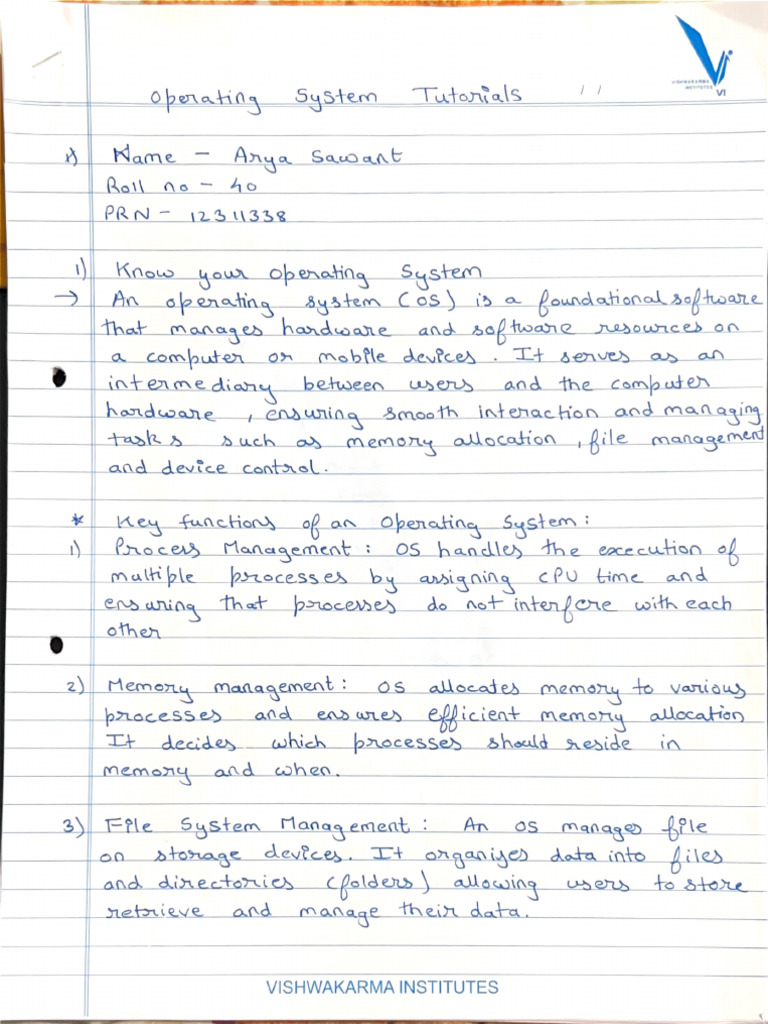 VISHWAKARMA
INSTITUTES VI
Operating System Tutorials / /
Name - Arya Sawant
Roll no - 40
PRN - 12311338
1) Know your operating System
→ An operating system (OS) is a foundational software
that manages hardware and software resources on
a computer or mobile devices. It serves as an
intermediary between users and the computer
hardware, ensuring smooth interaction and managing
tasks such as memory allocation, file management
and device control.
* Key functions of an Operating System:
1) Process Management: OS handles the execution of
multiple processes by assigning CPU time and
ensuring that processes do not interfere with each
other
2) Memory management: OS allocates memory to various
processes and ensures efficient memory allocation
It decides which processes should reside in
memory and when.
3) File System Management: An OS manages file
on storage devices. It organises data into files
and directories (folders) allowing users to store
retrieve and manage their data.
VISHWAKARMA INSTITUTES